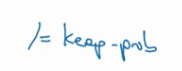 /= keep-prob